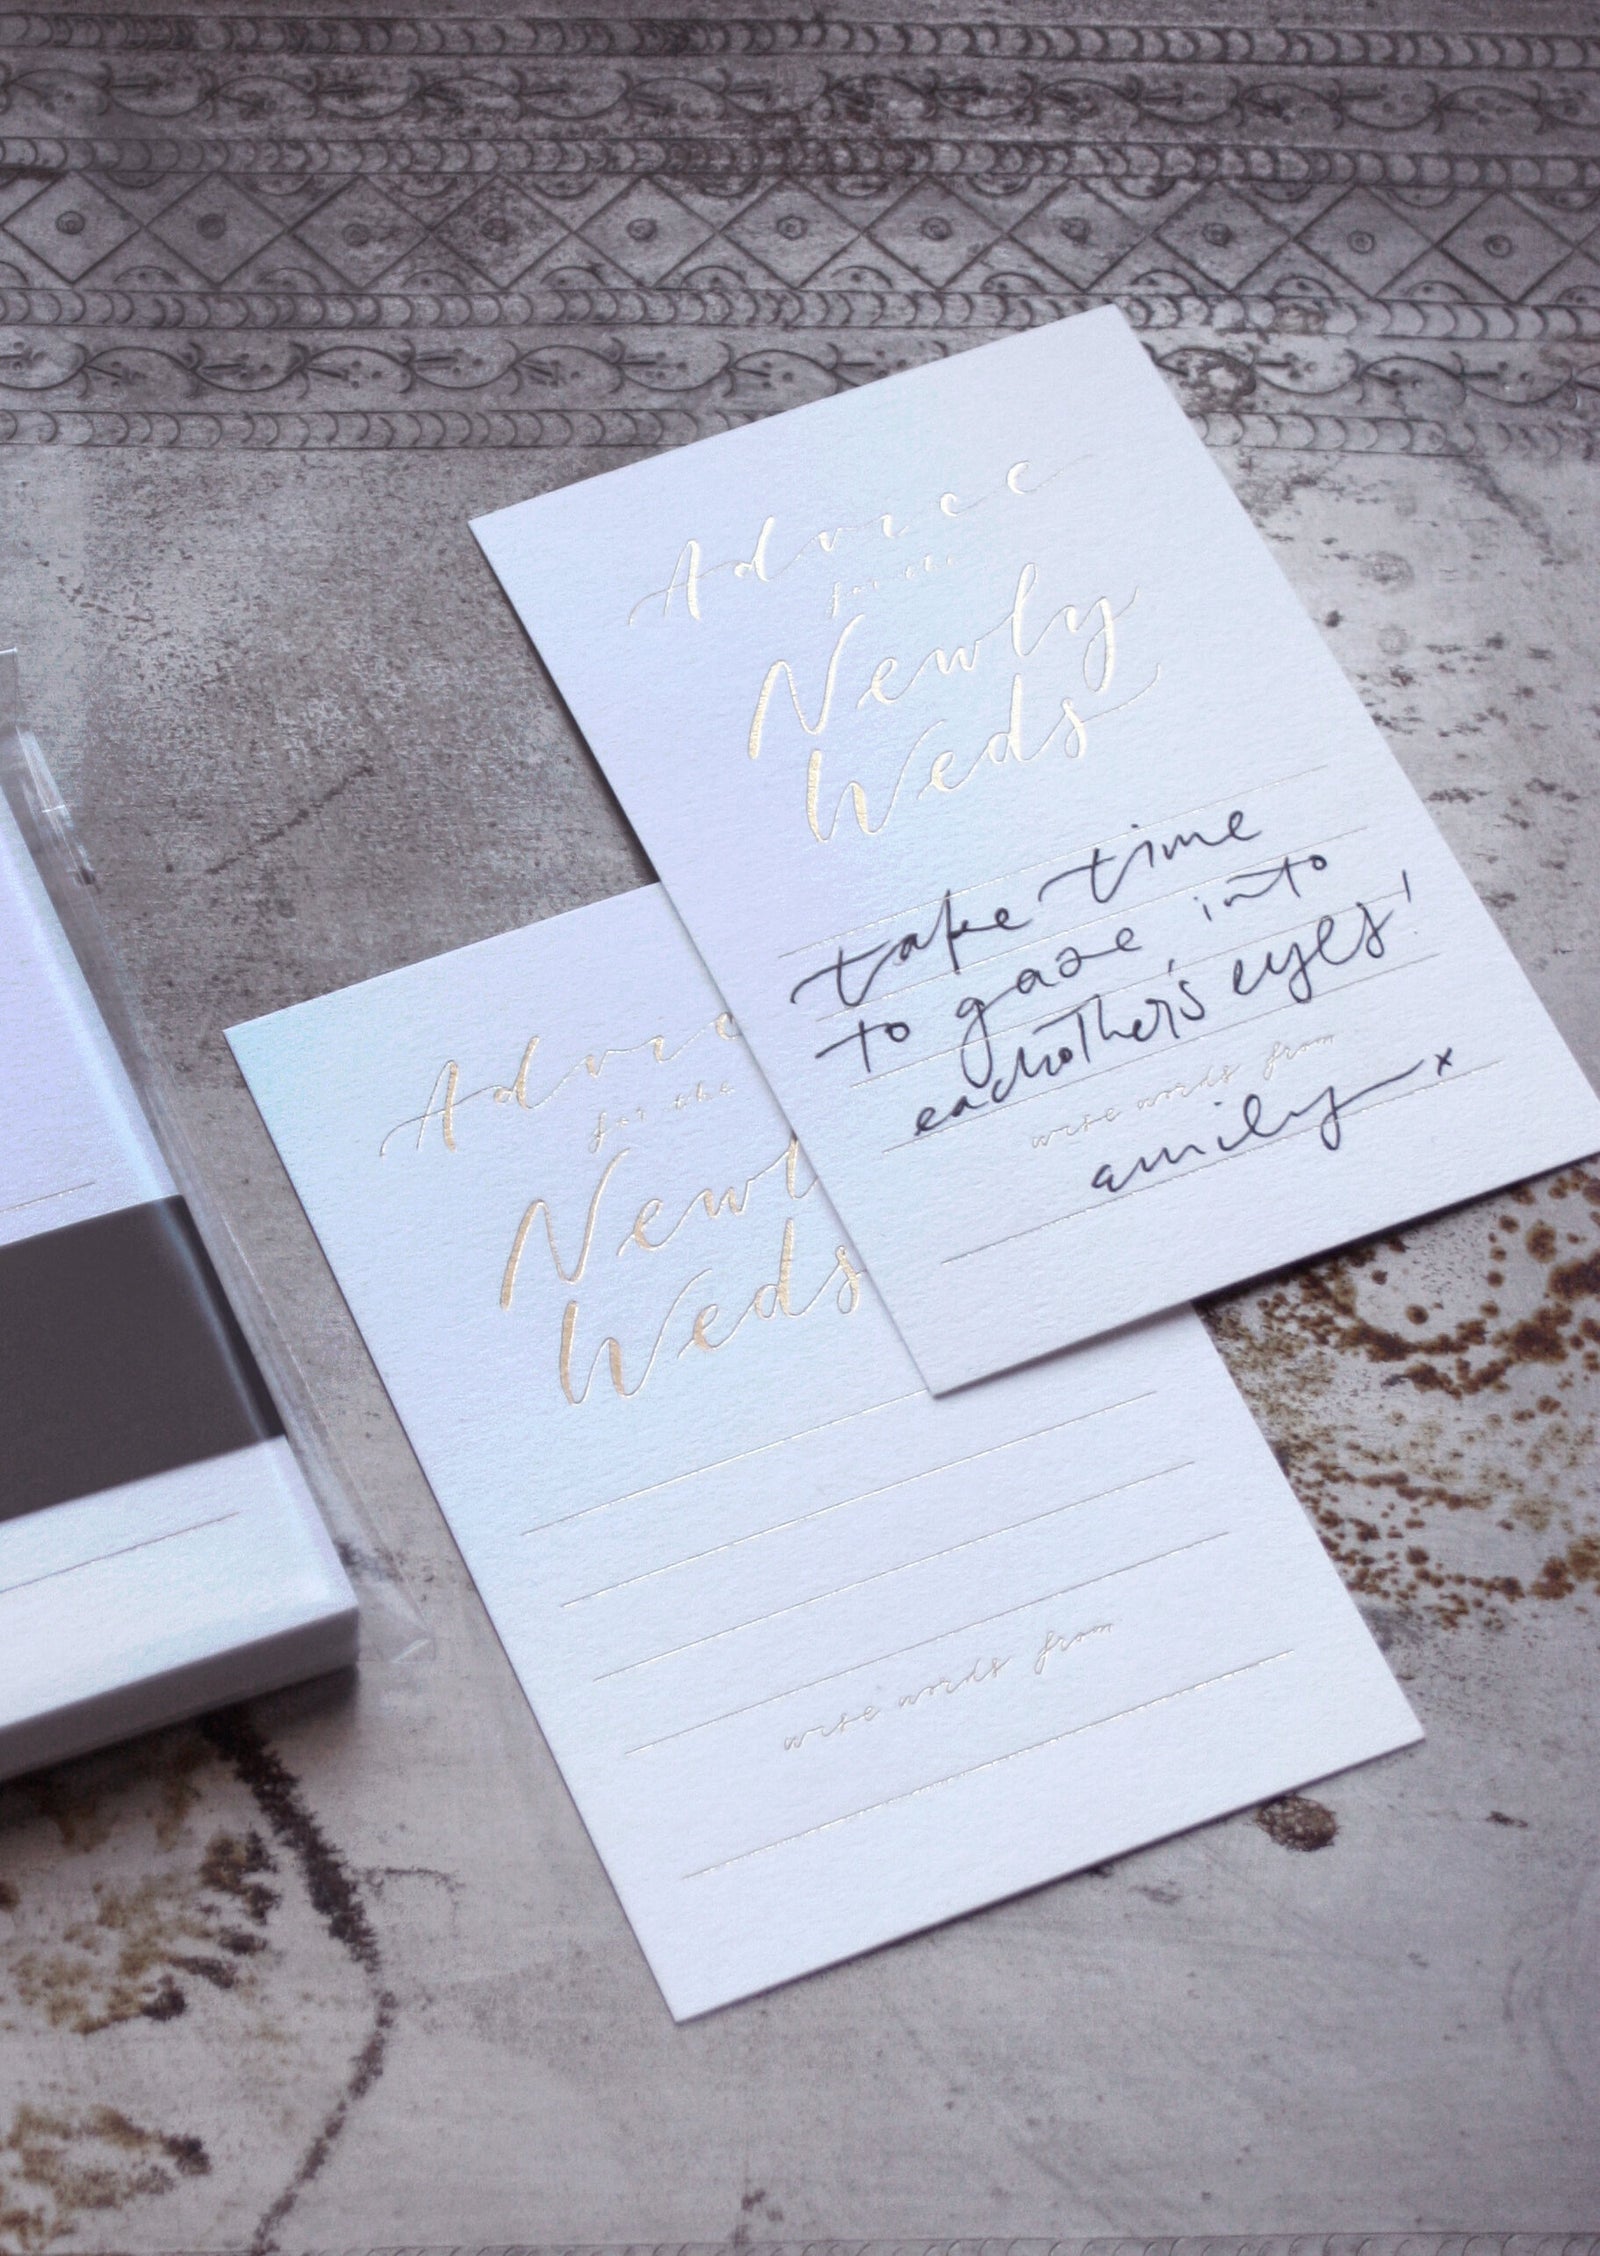 Advice
for the
Newly
Weds
take time
to gaze into
eachother's eyes!
wise words from
emily x
Advice
for the
Newly
Weds
wise words from